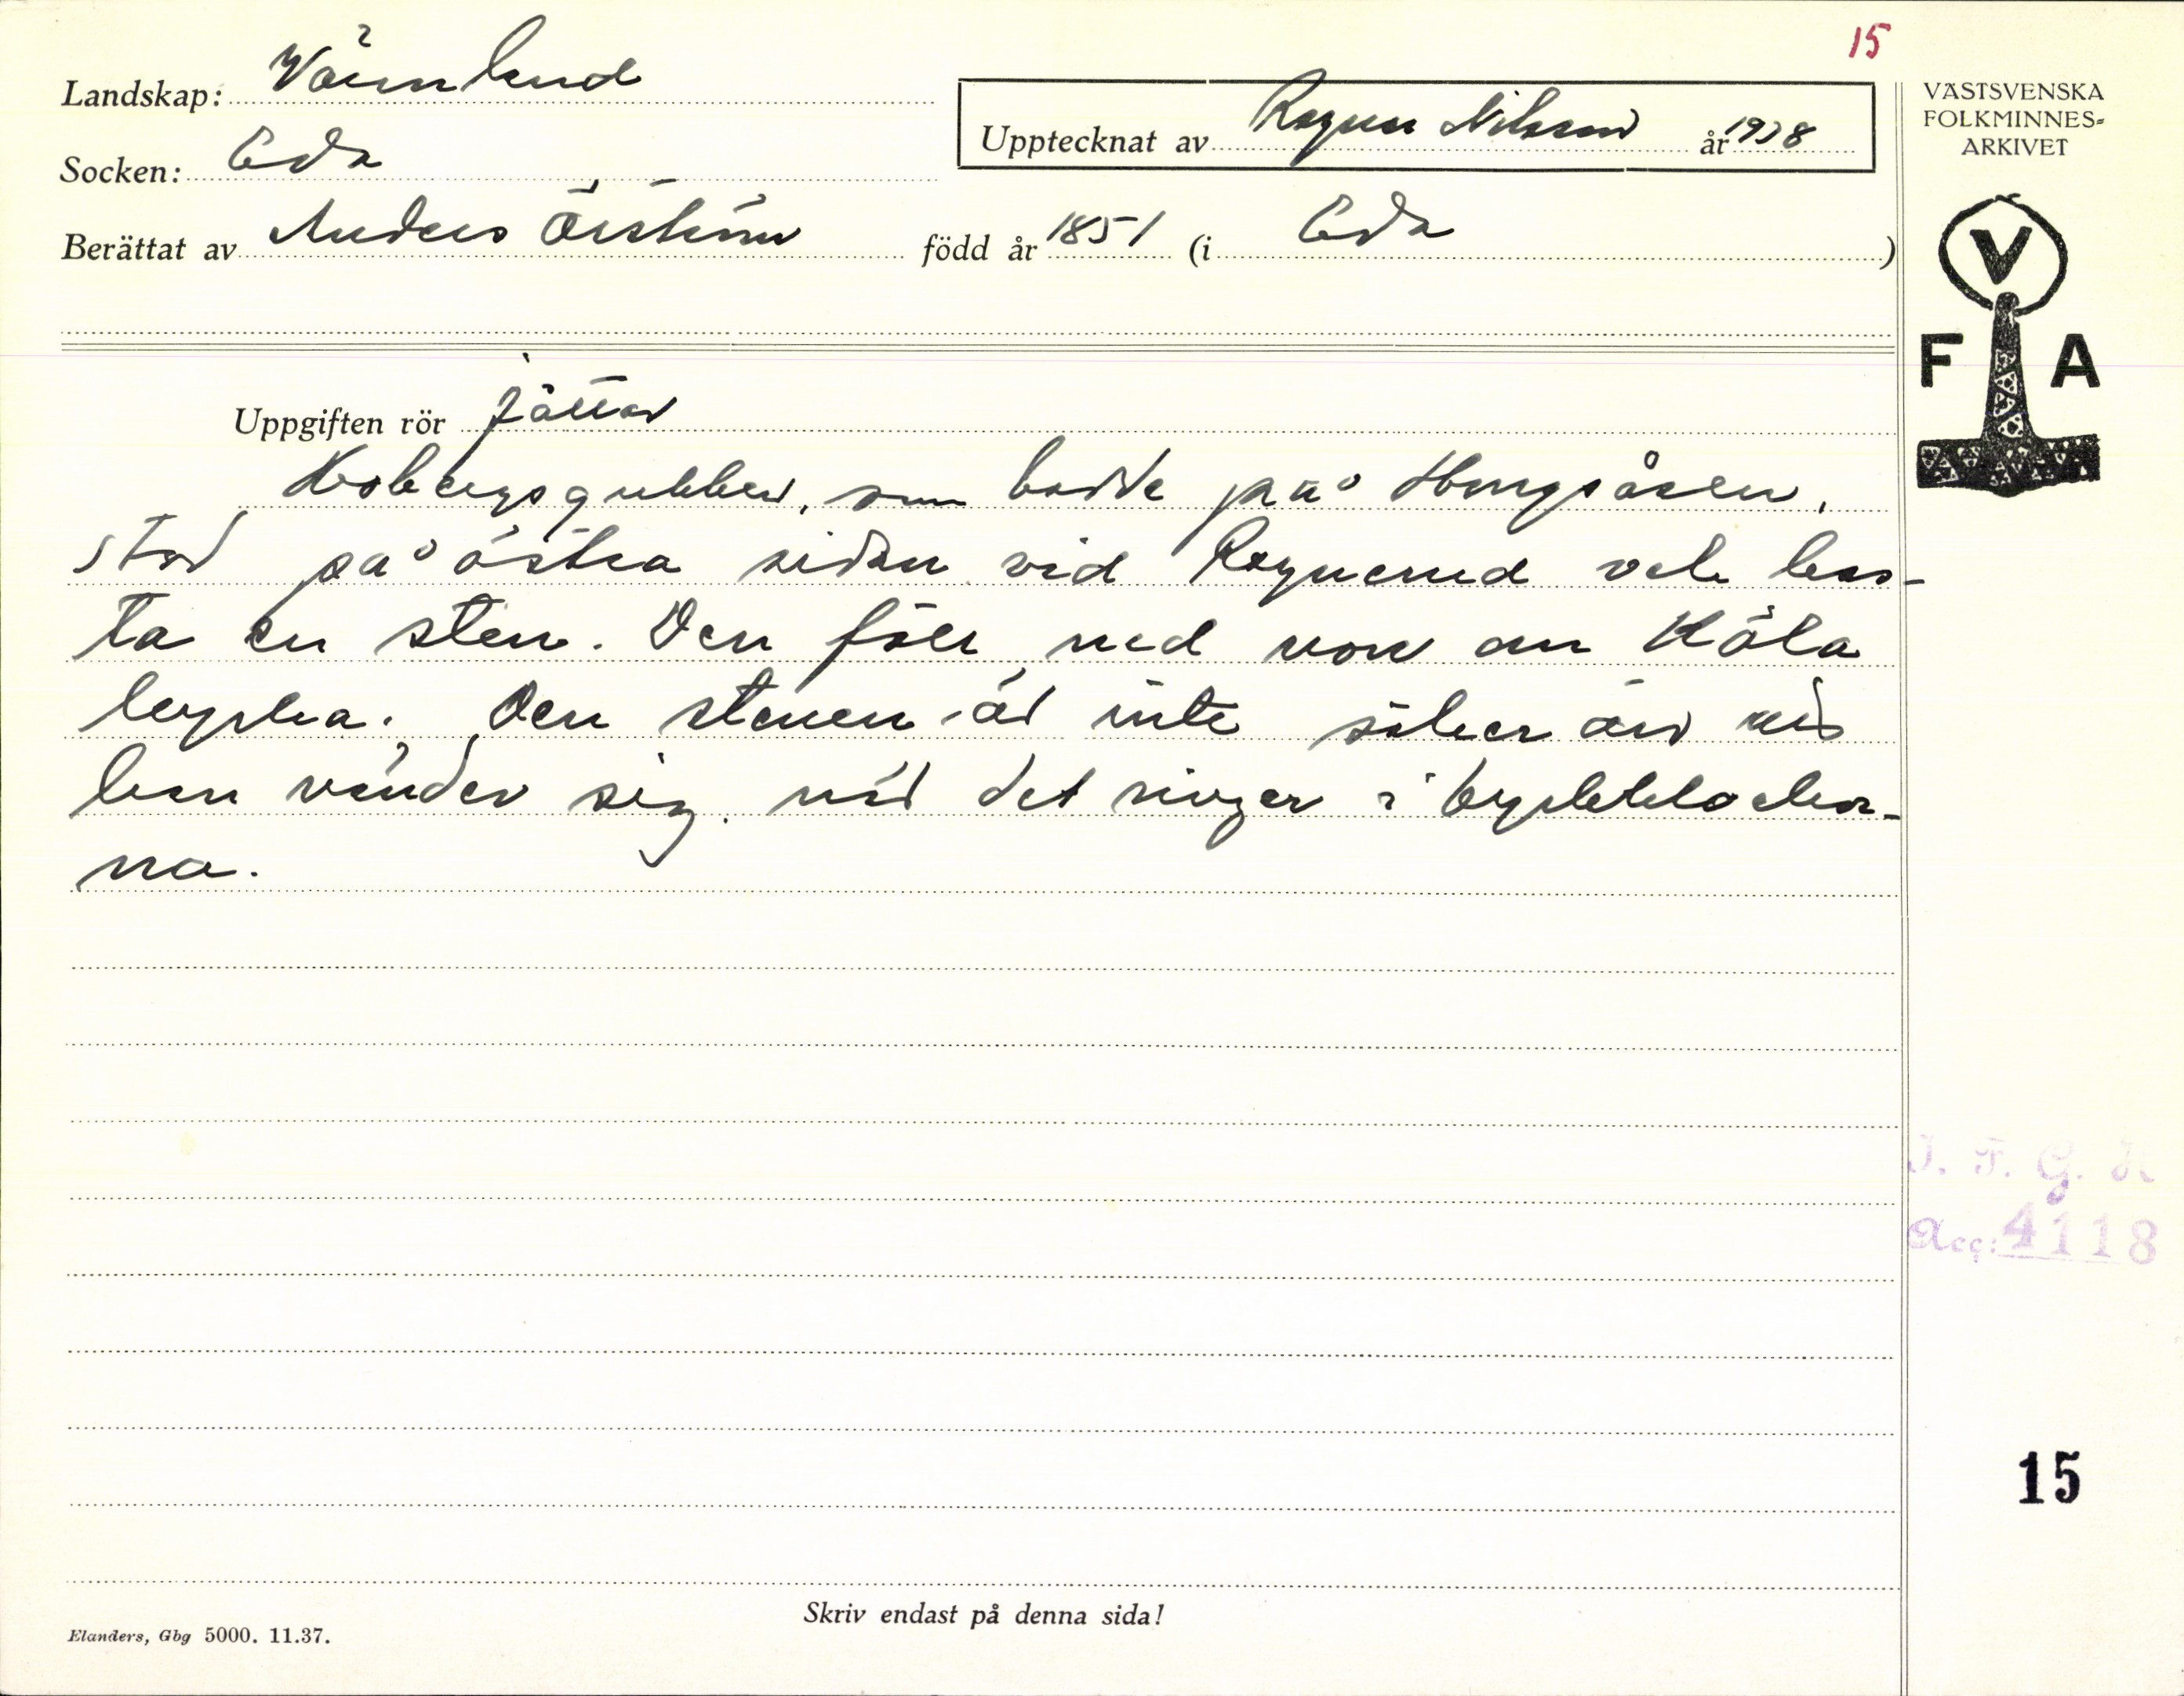 15
Landskap: Värmland
Socken: Eda
Upptecknat av Ragnar Nilsson år 1938
Berättat av Anders Örström född år 1851 (i Eda)
VÄSTSVENSKA
FOLKMINNES-
ARKIVET
V
F A
Uppgiften rör jättar
gubben, som bodde på
stod på östra sidan vid och kas-
ta en sten. Den föll ned norr om Köla
kyrka. Den stenen är inte säker än
han vänder sig, när det ringer i kyrkklockor-
na.
I. F. G. H.
Acc: 4118
15
Skriv endast på denna sida!
Elanders, Gbg 5000. 11.37.